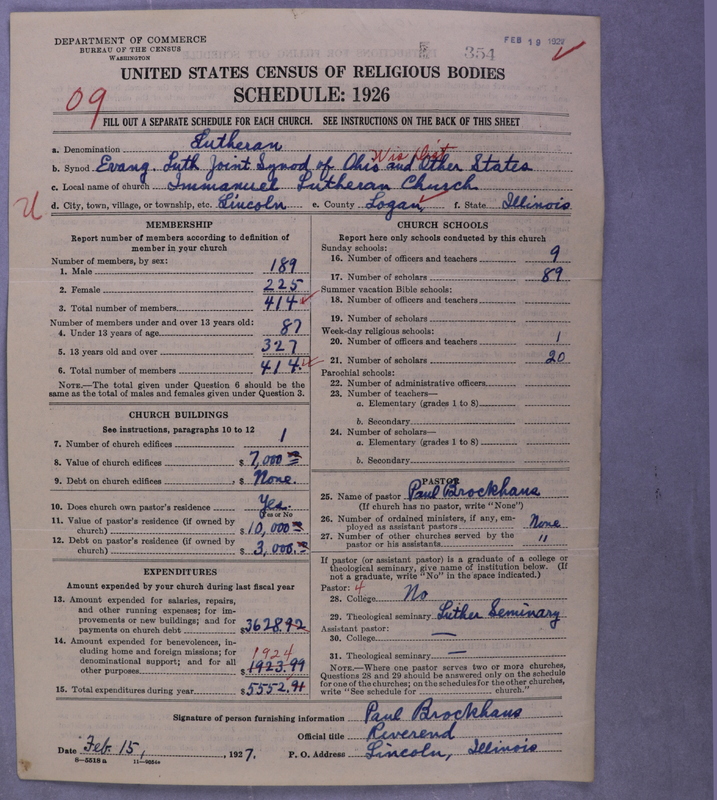 DEPARTMENT OF COMMERCE
BUREAU OF THE CENSUS
WASHINGTON
354
FEB 19 1927
UNITED STATES CENSUS OF RELIGIOUS BODIES
SCHEDULE: 1926
09
FILL OUT A SEPARATE SCHEDULE FOR EACH CHURCH. SEE INSTRUCTIONS ON THE BACK OF THIS SHEET
a. Denomination Lutheran
Wis Dist
b. Synod Evang. Luth Joint Synod of Ohio and Other States
c. Local name of church Immanuel Lutheran Church
U
d. City, town, village, or township, etc. Lincoln e. County Logan f. State Illinois
MEMBERSHIP
Report number of members according to definition of
member in your church
Number of members, by sex:
1. Male 189
2. Female 225
3. Total number of members 414
Number of members under and over 13 years old:
4. Under 13 years of age 87
5. 13 years old and over 327
6. Total number of members 414
NOTE.—The total given under Question 6 should be the
same as the total of males and females given under Question 3.
CHURCH BUILDINGS
See instructions, paragraphs 10 to 12
7. Number of church edifices 1
8. Value of church edifices $ 7,000
9. Debt on church edifices $ None.
10. Does church own pastor's residence Yes.
Yes or No
11. Value of pastor's residence (if owned by
church) $ 10,000
12. Debt on pastor's residence (if owned by
church) $ 3,000.
EXPENDITURES
Amount expended by your church during last fiscal year
13. Amount expended for salaries, repairs,
and other running expenses; for im-
provements or new buildings; and for
payments on church debt $ 3628.92
14. Amount expended for benevolences, in-
cluding home and foreign missions; for
denominational support; and for all
1924
other purposes $ 1923.99
15. Total expenditures during year $ 5552.91
CHURCH SCHOOLS
Report here only schools conducted by this church
Sunday schools:
16. Number of officers and teachers 9
17. Number of scholars 89
Summer vacation Bible schools:
18. Number of officers and teachers
19. Number of scholars
Week-day religious schools:
20. Number of officers and teachers 1
21. Number of scholars 20
Parochial schools:
22. Number of administrative officers
23. Number of teachers—
a. Elementary (grades 1 to 8)
b. Secondary
24. Number of scholars—
a. Elementary (grades 1 to 8)
b. Secondary
PASTOR
25. Name of pastor Paul Brockhaus
(If church has no pastor, write "None")
26. Number of ordained ministers, if any, em-
ployed as assistant pastors None
27. Number of other churches served by the
pastor or his assistants "
If pastor (or assistant pastor) is a graduate of a college or
theological seminary, give name of institution below. (If
not a graduate, write "No" in the space indicated.)
Pastor: 4
28. College No
29. Theological seminary Luther Seminary
Assistant pastor:
30. College —
31. Theological seminary —
NOTE.—Where one pastor serves two or more churches,
Questions 28 and 29 should be answered only on the schedule
for one of the churches; on the schedules for the other churches,
write "See schedule for church."
Signature of person furnishing information Paul Brockhaus
Official title Reverend
Date Feb. 15, 1927. P. O. Address Lincoln, Illinois
8-5518 a